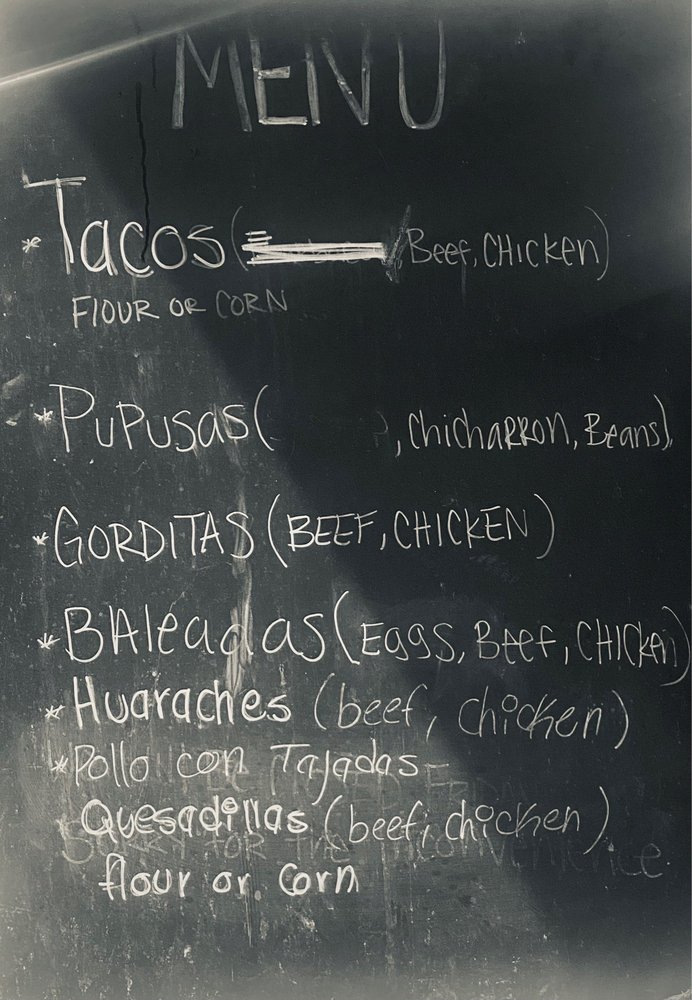 MENU
* Tacos ( Beef, CHICKEN)
FlOUR OR CORN
* PUPUSAS ( , ChichaRRON, Beans),
* GORDITAS (BEEF, CHICKEN)
* BAleadas (Eggs, Beef, CHICKEN)
* Huaraches (beef, chicken)
* Pollo con Tajadas
Quesadillas (beef, chicken)
SORRY FOR THE inconvenience
flour or corn